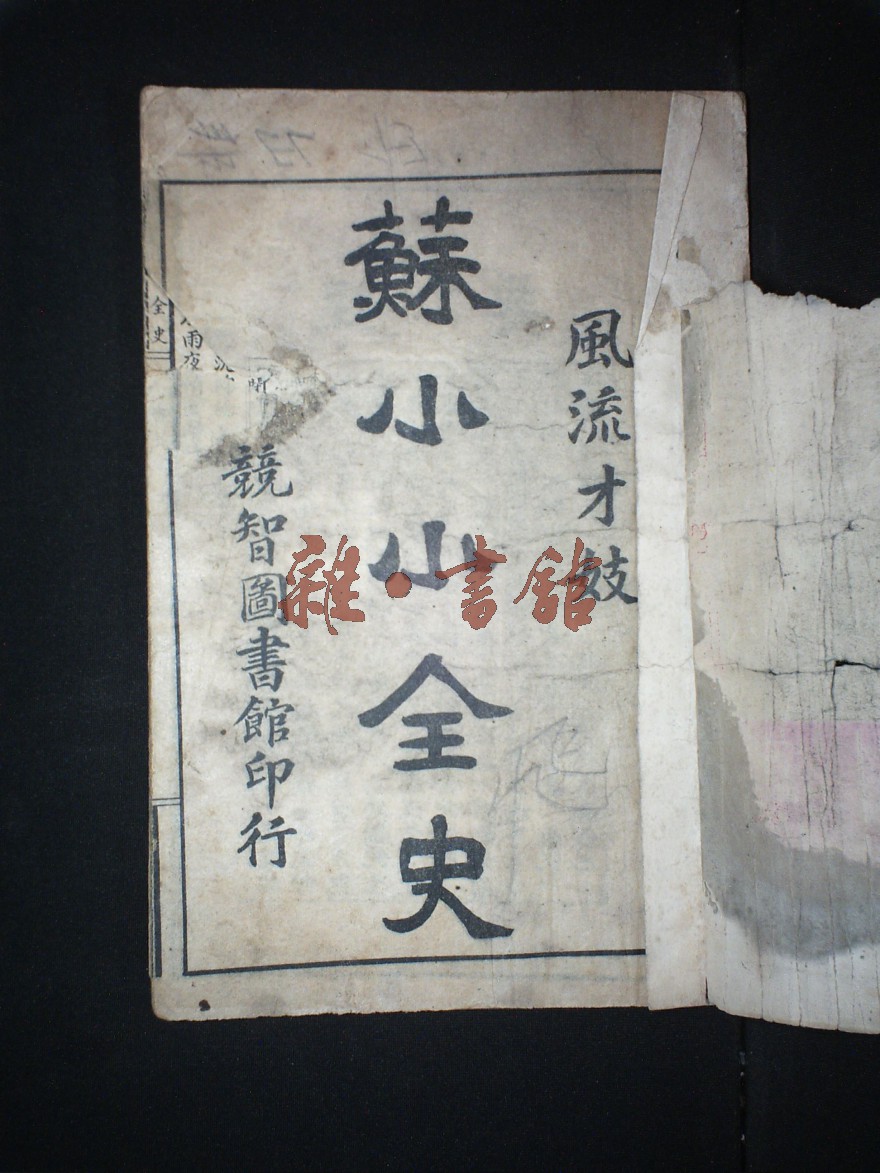 風流才妓
蘇小小全史
競智圖書館印行
全史
雨夜
雜·書館